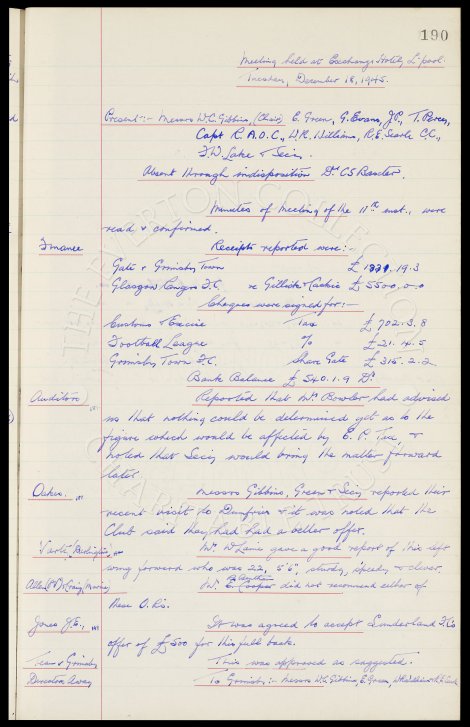 190
Meeting held at Exchange Hotel, L'pool.
Tuesday, December 18, 1945.
Present:- Messrs W.C. Gibbins, (Chair) E. Green, G. Evans, J.P., T. Percy,
Capt R.A.O.C., W.R. Williams, R.E. Searle C.C.,
F.W. Lake & Secy.
Absent through indisposition Dr C S Baxter.
Minutes of Meeting of the 11th inst., were
read & confirmed.
Finance Receipts reported were:-
Gate v Grimsby Town £ 19.3
Glasgow Rangers F.C. re Gillick & Caskie £ 5500.0.0
Cheques were signed for:-
Customs & Excise Tax £ 702.3.8
Football League % £ 21.4.5
Grimsby Town F.C. Share Gate £ 315.2.2
Bank Balance £ 540.1.9 Dr
Auditors Reported that Mr Rowler had advised
us that nothing could be determined yet as to the
figure which would be affected by E.P. Tax, &
noted that Secy would bring the matter forward
later.
Oakes. Messrs Gibbins, Green & Secy reported their
recent visit to Dumfries & it was noted that the
Club said they had had a better offer.
Darlington, Mr W Lane gave a good report of this left
wing forward who was 22, 5'6", sturdy, speedy & clever.
(Craig, Marine) Mr E. Cooper did not recommend either of
these O.Ls.
Jones J.E., It was agreed to accept Sunderland F.C's
offer of £500 for this full back.
Team v Grimsby This was approved as suggested.
Directors Away To Grimsby:- Messrs W.C. Gibbins, E. Green,
THE EVERTON COLLECTION